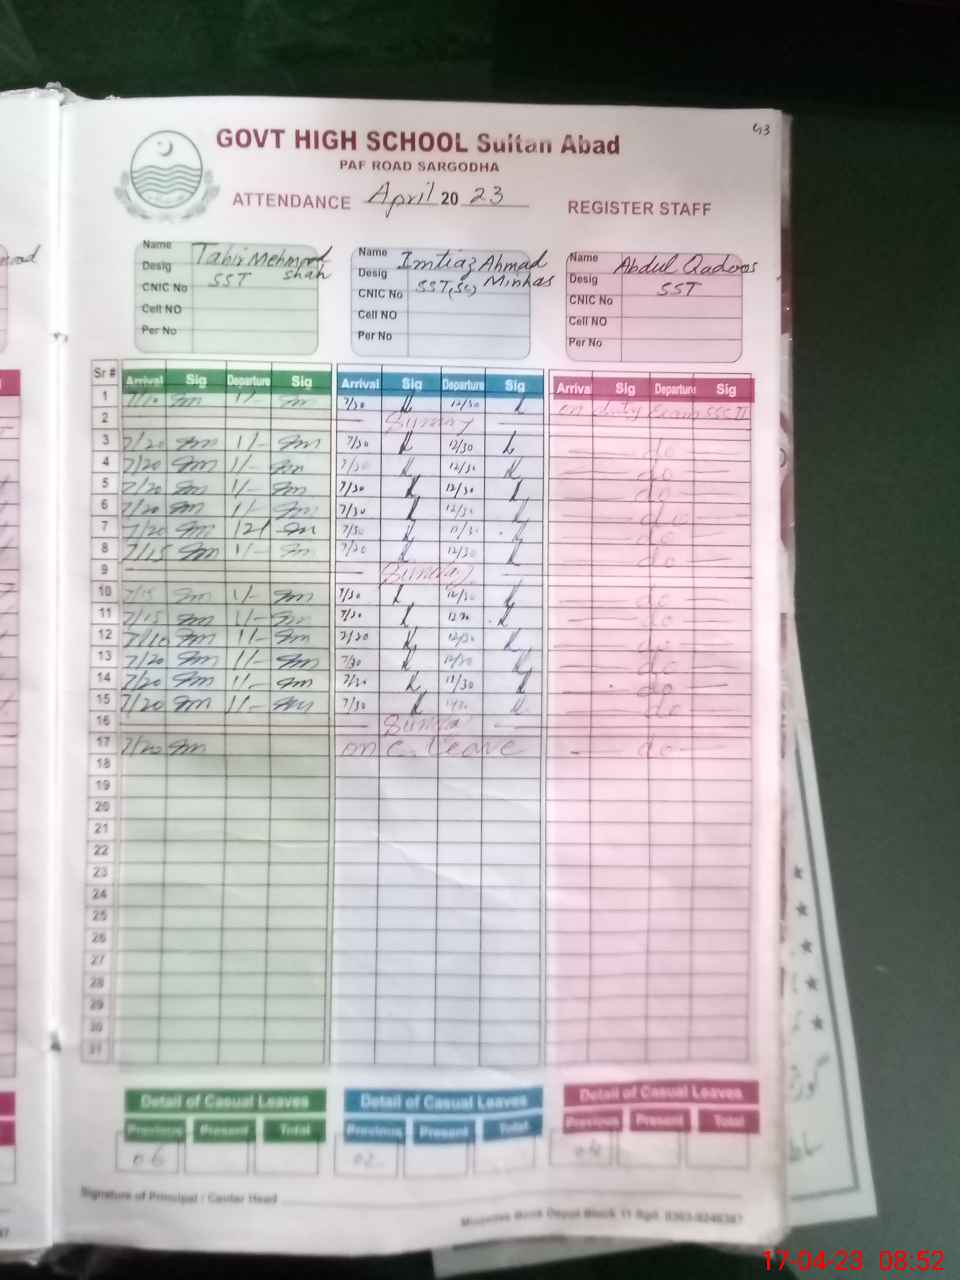 93
GOVT HIGH SCHOOL Sultan Abad
PAF ROAD SARGODHA
ATTENDANCE April 20 23 REGISTER STAFF
Name Tahir Mehmood Shah
Desig SST
CNIC No
Cell NO
Per No
Name Imtiaz Ahmad Minhas
Desig SST(Sc)
CNIC No
Cell NO
Per No
Name Abdul Qadoos
Desig SST
CNIC No
Cell NO
Per No
Sr # Arrival Sig Departure Sig Arrival Sig Departure Sig Arrival Sig Departure Sig
1 7/10 1/- 7/30 12/30 on duty Exam SSC II
2 Sunday
3 7/20 1/- 7/30 12/30 do
4 7/20 1/- 7/30 12/30 do
5 7/20 1/- 7/30 12/30 do
6 7/20 1/- 7/30 12/30 do
7 7/20 7/30 do
8 7/15 1/- 12/30 do
9 Sunday
10 7/15 1/- 7/30 12/30 do
11 7/15 1/- 7/30 do
12 7/10 1/- 12/30 do
13 7/20 1/- 7/30 12/30 do
14 7/20 1/- 7/30 do
15 7/20 1/- 7/30 do
16 Sunday
17 7/20 on C. leave do
18
19
20
21
22
23
24
25
26
27
28
29
30
31
Detail of Casual Leaves Detail of Casual Leaves Detail of Casual Leaves
Previous Present Total Previous Present Total Previous Present Total
06 02 04
Signature of Principal / Center Head
17-04-23 08:52